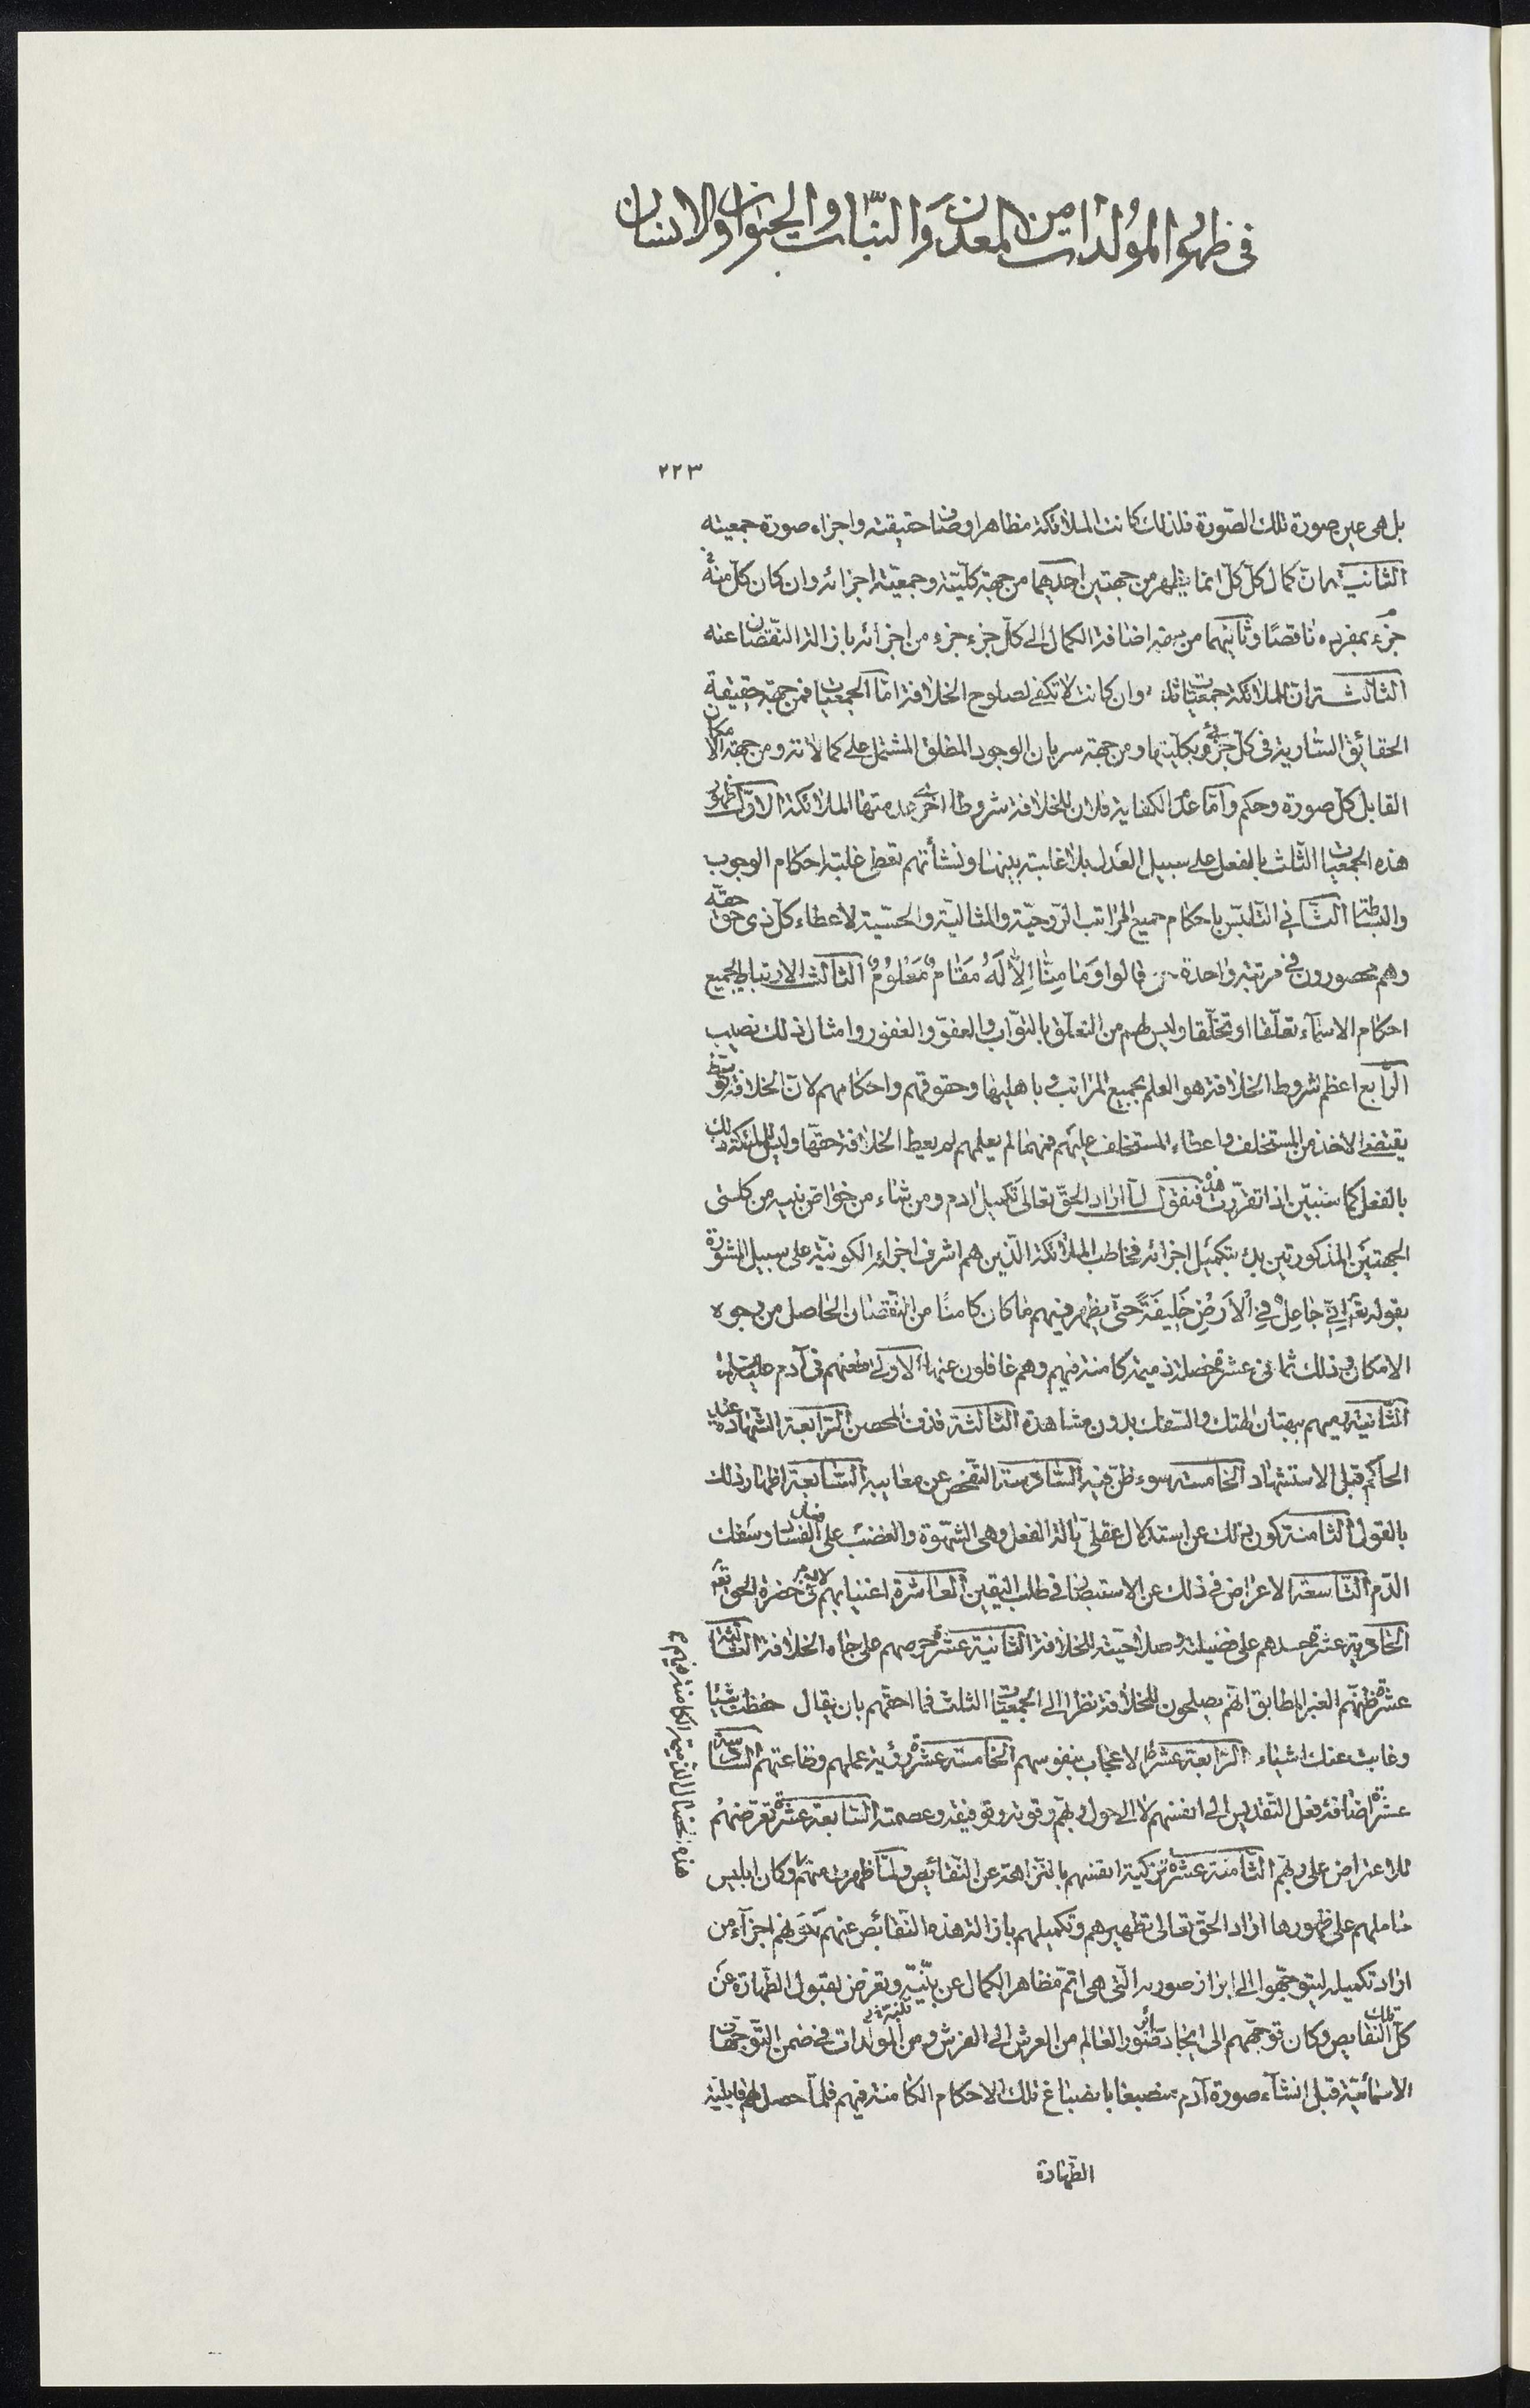 في ظهور المولدات من المعدن والنبات والحيوان والانسان
٢٢٣
بل هي عين صورة تلك الصّورة فلذلك كانت الملائكة مظاهر اوصاف حقيقته واجزاء صورة جمعيته
الثانية ان كمال كلّ كلّ انما يظهر من جهتين احديهما من جهة كلّيته وجمعيّة اجزائه وان كان كلّ منه
جزء بمفرده ناقصًا وثانيهما من اضافة الكمال الى كلّ جزء جزء من اجزائه بازالة النّقصان عنه
الثالثة ان للملائكة جمعيات ثلاث وان كانت لا تكفي لصلوح الخلافة امّا الجمعيات فمن جهة حقيقة
الحقائق السّارية في كلّ جزء بكلّيتها ومن جهة سريان الوجود المطلق المشتمل على كمالاته ومن جهة الامكان
القابل كلّ صورة وحكم وامّا عدم الكفاية فلان للخلافة شروطا اخر عدمتها الملائكة الاوّل ظهور
هذه الجمعيات الثّلث بالفعل على سبيل العدل بلا غلبة بينها ونشأتهم تعطى غلبة احكام الوجوب
والبساطة الثّاني التلبّس باحكام جميع المراتب الرّوحيّة والمثاليّة والحسّية لاعطاء كلّ ذي حقّ حقّه
وهم محصورون في مرتبة واحدة قالوا وَمَا مِنّا اِلاّ لَهُ مَقامٌ مَعْلُومٌ الثالث الارتباط بجميع
احكام الاسمآء تعلّقا او تخلّقا وليس لهم من التعلّق بالتوّاب والعفوّ والغفور وامثال ذلك نصيب
الرّابع اعظم شروط الخلافة هو العلم بجميع المراتب وباهليها وحقوقهم واحكامهم لانّ الخلافة
يقتضي الاخذ من المستخلف واعطاء المستخلف عليهم فمهما لم يعلمهم لم يعط الخلافة حقّها وليس للملئكة ذلك
بالفعل كما سنبيّن اذا تقرّرت هذه فنقول لمّا اراد الحقّ تعالى تكميل ادم ومن شاء من خواصّ بنيه من كلتى
الجهتين المذكورتين بدء بتكميل اجزائه فخاطب الملائكة الّذين هم اشرف اجزاءه الكونيّة على سبيل المشورة
بقوله تعَ اِنّي جاعِلٌ فِي اْلاَرْضِ خَليفَةً حتّى يظهر فيهم ما كان كامنًا من النّقصان الحاصل من وجوه
الامكان وذلك ثمانى عشرة خصلة ذميمة كامنة فيهم وهم غافلون عنها الاولى طعنهم في آدم
الثّانية رميهم ببهتان الهتك والسّفك بدون مشاهدة الثالثة قذف المحصن الرّابعة الشّهادة عند
الحاكم قبل الاستشهاد الخامسة سوء ظنّ فيه السّادسة التّفحّص عن معايبه السّابعة اظهار ذلك
بالقول الثامنة كون ذلك عن استدلال عقليّ بآلة الفعل وهي الشّهوة والغضب على الفساد وسفك
الدّم التّاسعة الاعراض في ذلك عن الاستبصار في طلب اليقين العاشرة اغتيابهم لادم في حضرة الحق تعَ
الحادية عشرة حسدهم على فضيلة وصلاحيّته للخلافة الثّانية عشرة حرصهم على جاه الخلافة الثّالثة
عشرة ظنّهم الغير المطابق انّهم يصلحون للخلافة نظرا الى الجمعيّات الثلث فما احقّهم بان يقال حفظت شيئا
وغابت عنك اشياء الرّابعة عشر الاعجاب بنفوسهم الخامسة عشرة رؤية عملهم وطاعتهم السّادسة
عشرة اضافة فعل التّقديس الى انفسهم لا الى حول ربهم وقوته وتوفيقه وعصمته السّابعة عشرة تعرّضهم
للاعتراض على ربهم الثّامنة عشرة تزكية انفسهم بالنّزاهة عن النّقائص ولمّا ظهرت منهم وكان ابليس
حاملهم على ظهورها اراد الحقّ تعالى تطهيرهم وتكميلهم بازالة هذه النّقائص عنهم لكونهم اجزآء من
اراد تكميله ليتوجّهوا الى ابراز صورته الّتى هي اتمّ مظاهر الكمال عن بيّنة وتعرّض لقبول الطّهارة عن
كلّ تلك النقايص وكان توجّههم الى ايجاد صور العالم من العرش الى الفرش ومن المولّدات في ضمن التّوجّهات
الاسمائيّة قبل انشآء صورة آدم منصبغا بانصباغ تلك الاحكام الكامنة فيهم فلمّا حصل لهم قابليّة
الطّهارة
هذه الخصال الذميمة الكامنة فيهم